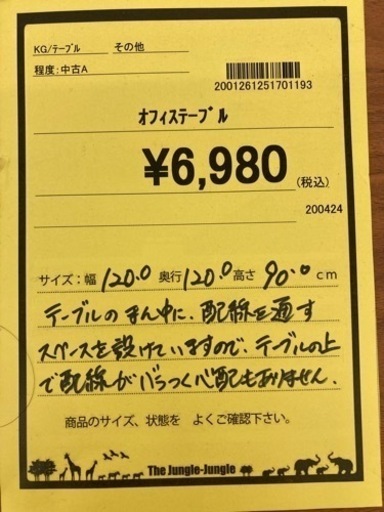 KG/ﾃｰﾌﾞﾙ その他
程度:中古A
2001261251701193
ｵﾌｨｽﾃｰﾌﾞﾙ
¥6,980(税込)
200424
サイズ:幅 120.0 奥行 120.0 高さ 90.0 cm
テーブルのまん中に、配線を通す
スペースを設けていますので、テーブルの上
で配線がバラつく心配もありません。
商品のサイズ、状態を よくご確認下さい。
The Jungle-Jungle